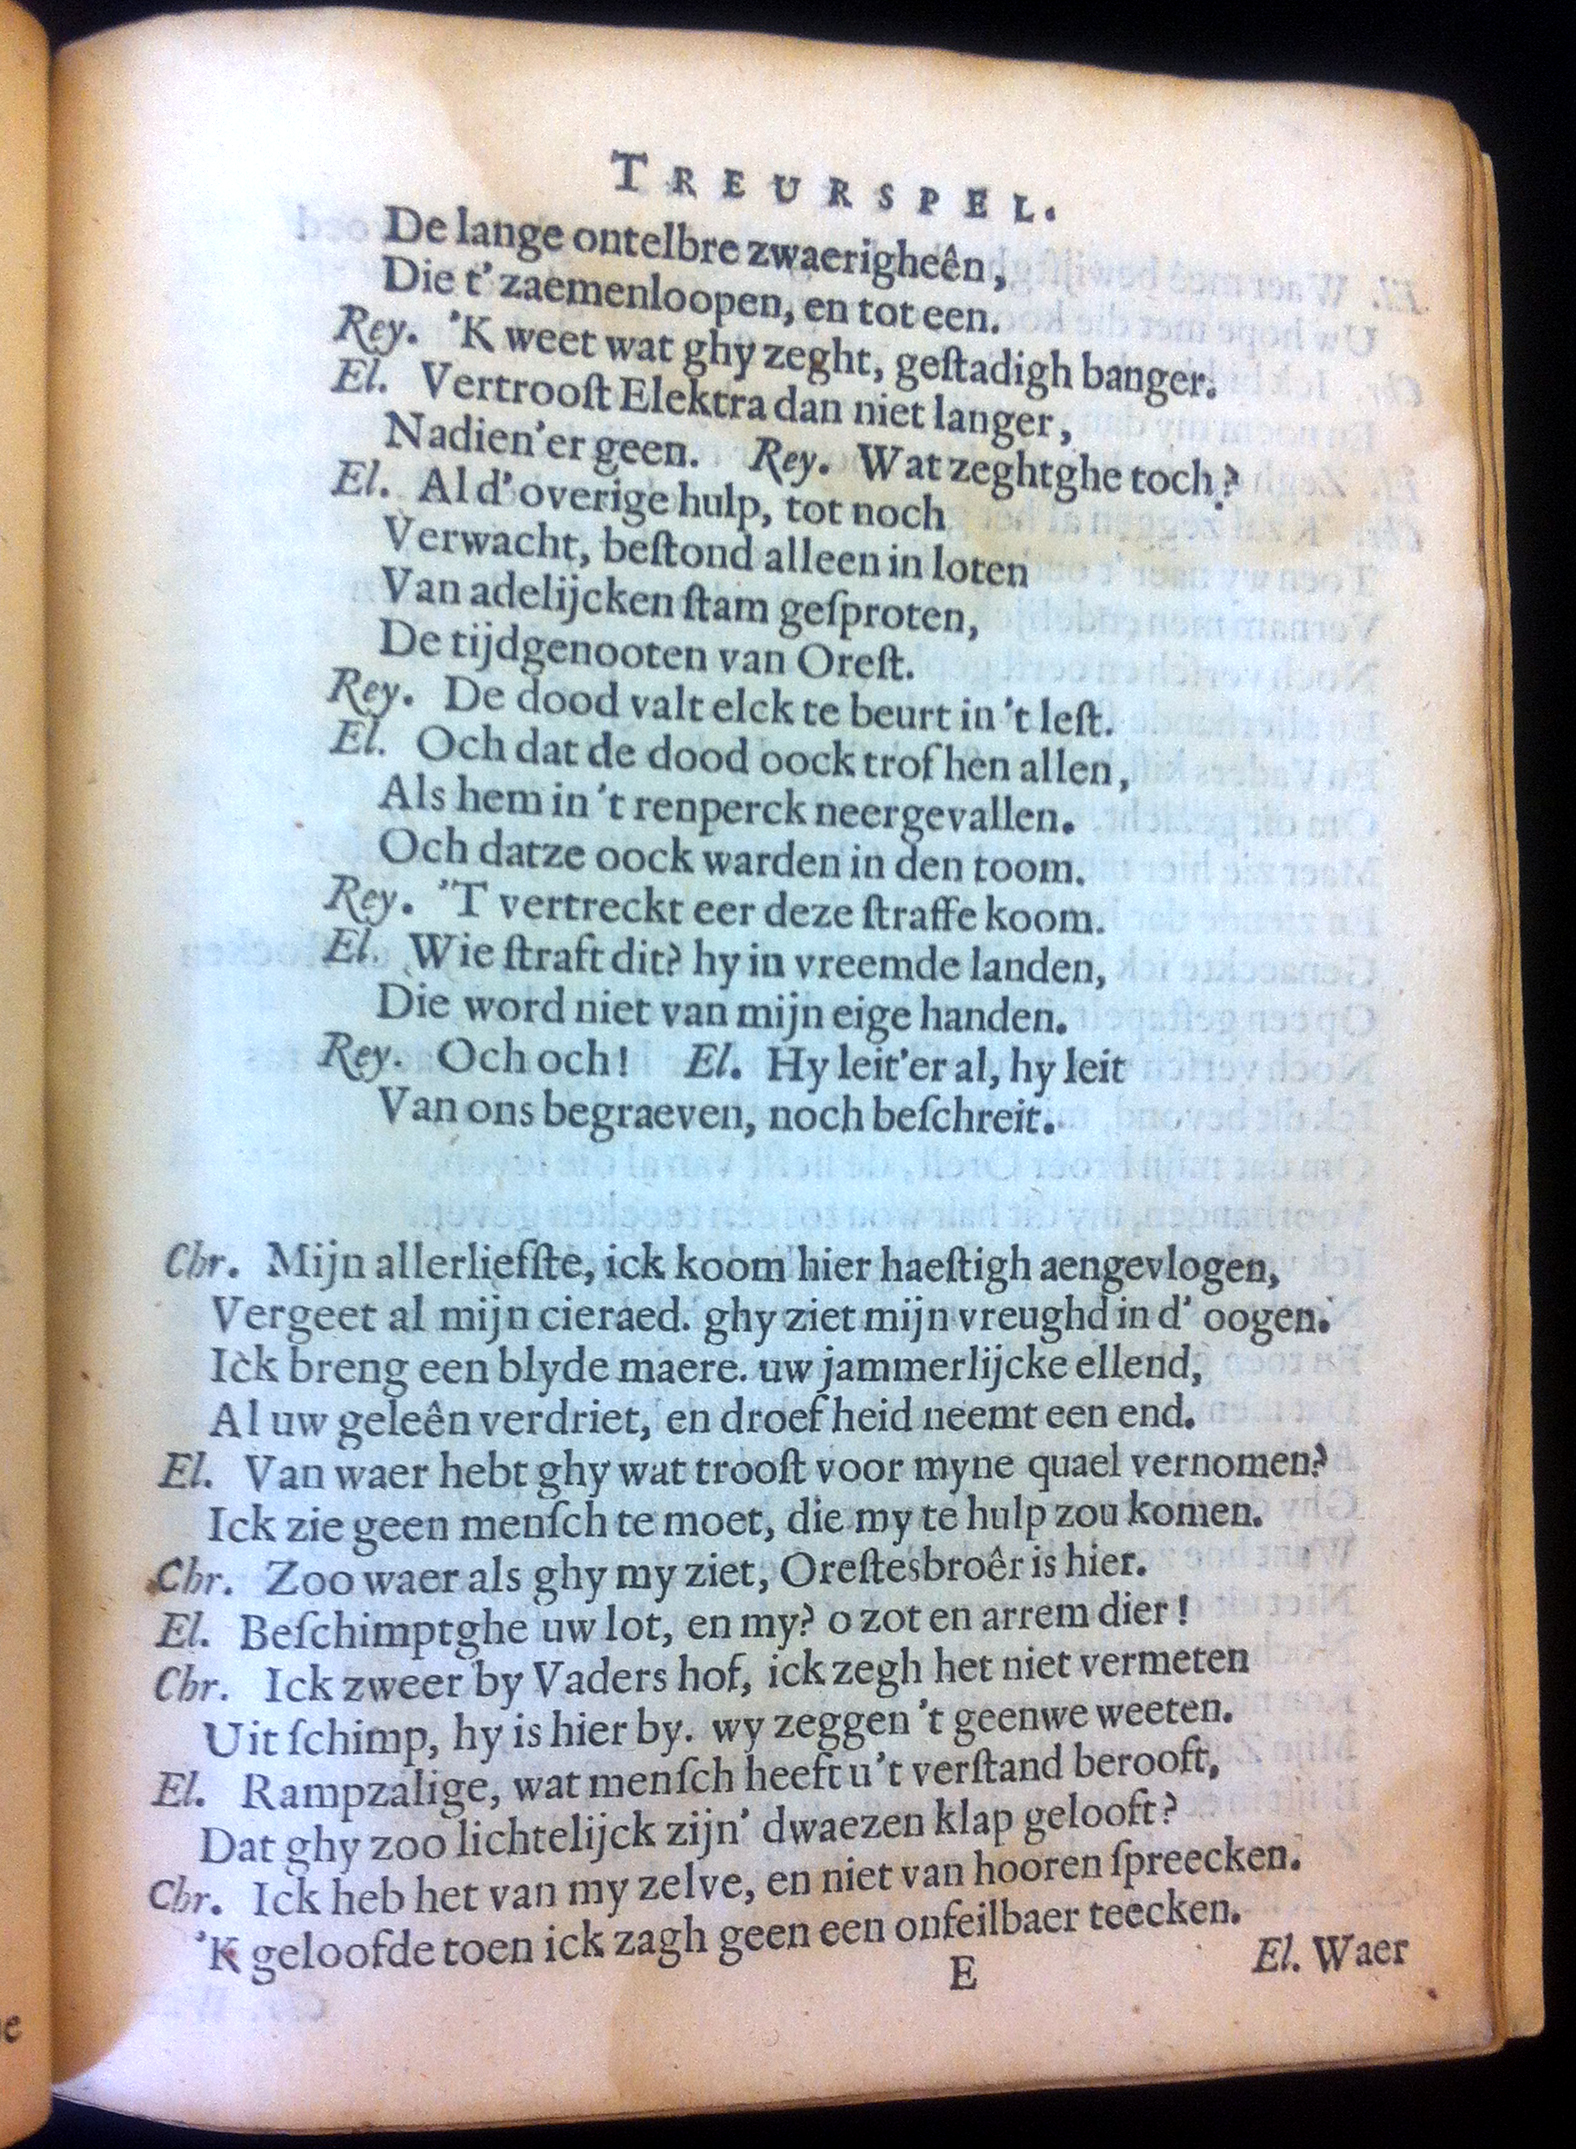 TREURSPEL.
De lange ontelbre zwaerigheên,
Die t' zaemenloopen, en tot een.
Rey. 'K weet wat ghy zeght, geſtadigh banger.
El. Vertrooſt Elektra dan niet langer,
Nadien'er geen. Rey. Wat zeghtghe toch?
El. Al d' overige hulp, tot noch
Verwacht, beſtond alleen in loten
Van adelijcken ſtam geſproten,
De tijdgenooten van Oreſt.
Rey. De dood valt elck te beurt in 't leſt.
El. Och dat de dood oock trof hen allen,
Als hem in 't renperck neergevallen.
Och datze oock warden in den toom.
Rey. 'T vertreckt eer deze ſtraffe koom.
El. Wie ſtraft dit? hy in vreemde landen,
Die word niet van mijn eige handen.
Rey. Och och! El. Hy leit'er al, hy leit
Van ons begraeven, noch beſchreit.
Chr. Mijn allerliefſte, ick koom hier haeſtigh aengevlogen,
Vergeet al mijn cieraed. ghy ziet mijn vreughd in d' oogen.
Ick breng een blyde maere. uw jammerlijcke ellend,
Al uw geleên verdriet, en droefheid neemt een end.
El. Van waer hebt ghy wat trooſt voor myne quael vernomen?
Ick zie geen menſch te moet, die my te hulp zou komen.
Chr. Zoo waer als ghy my ziet, Oreſtesbroêr is hier.
El. Beſchimptghe uw lot, en my? o zot en arrem dier!
Chr. Ick zweer by Vaders hof, ick zegh het niet vermeten
Uit ſchimp, hy is hier by. wy zeggen 't geenwe weeten.
El. Rampzalige, wat menſch heeft u 't verſtand berooft,
Dat ghy zoo lichtelijck zijn' dwaezen klap gelooft?
Chr. Ick heb het van my zelve, en niet van hooren ſpreecken.
'K geloofde toen ick zagh geen een onfeilbaer teecken.
E El. Waer